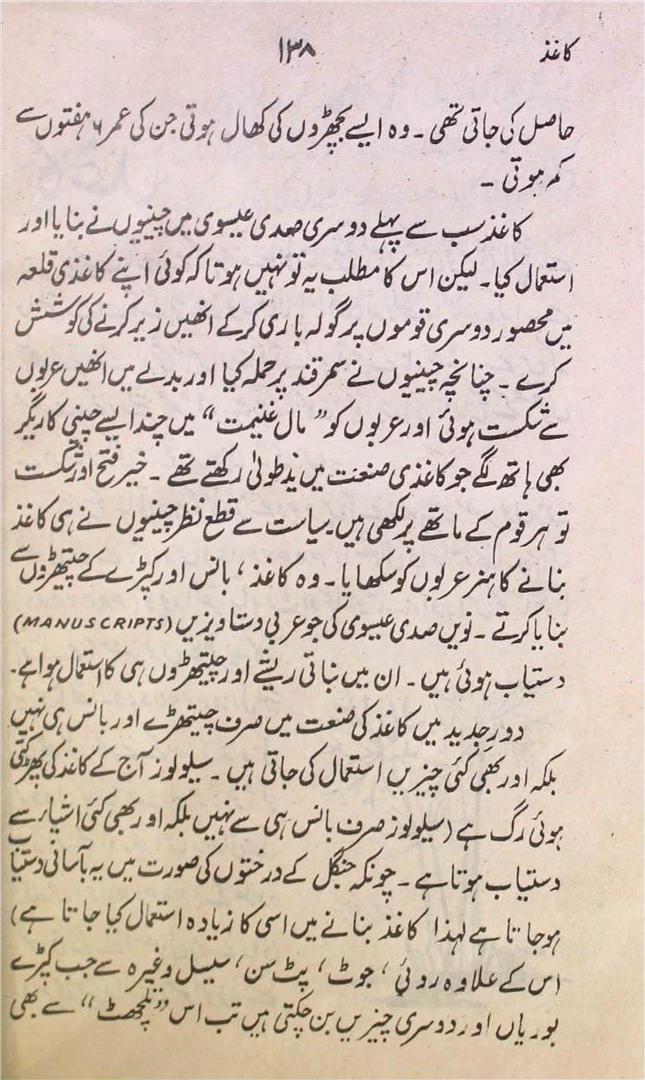 کاغذ
۱۳۸
حاصل کی جاتی تھی ۔ وہ ایسے بچھڑوں کی کھال ہوتی جن کی عمر ۶ ہفتوں سے
کم ہوتی ۔
کاغذ سب سے پہلے دوسری صدی عیسوی میں چینیوں نے بنایا اور
استعمال کیا ۔ لیکن اس کا مطلب یہ تو نہیں ہوتا کہ کوئی اپنے کاغذی قلعہ
میں محصور دوسری قوموں پر گولہ باری کرکے انھیں زیر کرنے کی کوشش
کرے ۔ چنانچہ چینیوں نے سمرقند پر حملہ کیا اور بدلے میں انھیں عربوں
سے شکست ہوئی اور عربوں کو ”مال غنیمت“ میں چند ایسے چینی کاریگر
بھی ہاتھ لگے جو کاغذی صنعت میں ید طولیٰ رکھتے تھے ۔ خیر فتح اور شکست
تو ہر قوم کے ماتھے پر لکھی ہیں ۔ سیاست سے قطع نظر چینیوں نے ہی کاغذ
بنانے کا ہنر عربوں کو سکھایا ۔ وہ کاغذ ، بانس اور کپڑے کے چیتھڑوں سے
بنایا کرتے ۔ نویں صدی عیسوی کی جو عربی دستاویزیں (MANUSCRIPTS)
دستیاب ہوئی ہیں ۔ ان میں نباتی ریشے اور چیتھڑوں ہی کا استعمال ہوا ہے۔
دورِ جدید میں کاغذ کی صنعت میں صرف چیتھڑے اور بانس ہی نہیں
بلکہ اور بھی کئی چیزیں استعمال کی جاتی ہیں ۔ سیلولوز آج کے کاغذ کی پھڑکتی
ہوئی رگ ہے (سیلولوز صرف بانس ہی سے نہیں بلکہ اور بھی کئی اشیار سے
دستیاب ہوتا ہے ۔ چونکہ جنگل کے درختوں کی صورت میں یہ بآسانی دستیاب
ہوجاتا ہے لہذا کاغذ بنانے میں اسی کا زیادہ استعمال کیا جاتا ہے)
اس کے علاوہ روئی ، جوٹ ، پٹ سن ، سیسل وغیرہ سے جب کپڑے
بوریاں اور دوسری چیزیں بن چکتی ہیں تب اس ”تلچھٹ“ سے بھی